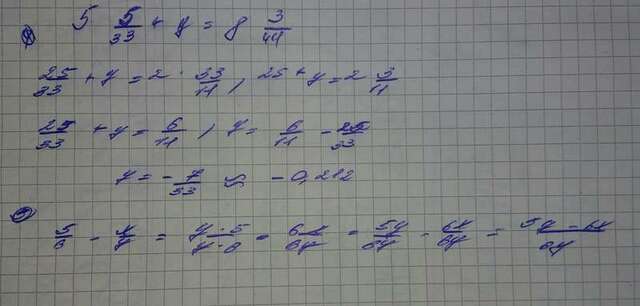 5 5/33 + y = 8 3/44
25/33 + y = 2 · 33/11, 25 + y = 2 3/11
25/33 + y = 6/11, y = 6/11 - 25/33
y = - 7/33 ≈ -0,212
5/6 - x/y = y·5/y·6 - 6x/6y = 5y/6y - 6x/6y = 5y - 6x/6y